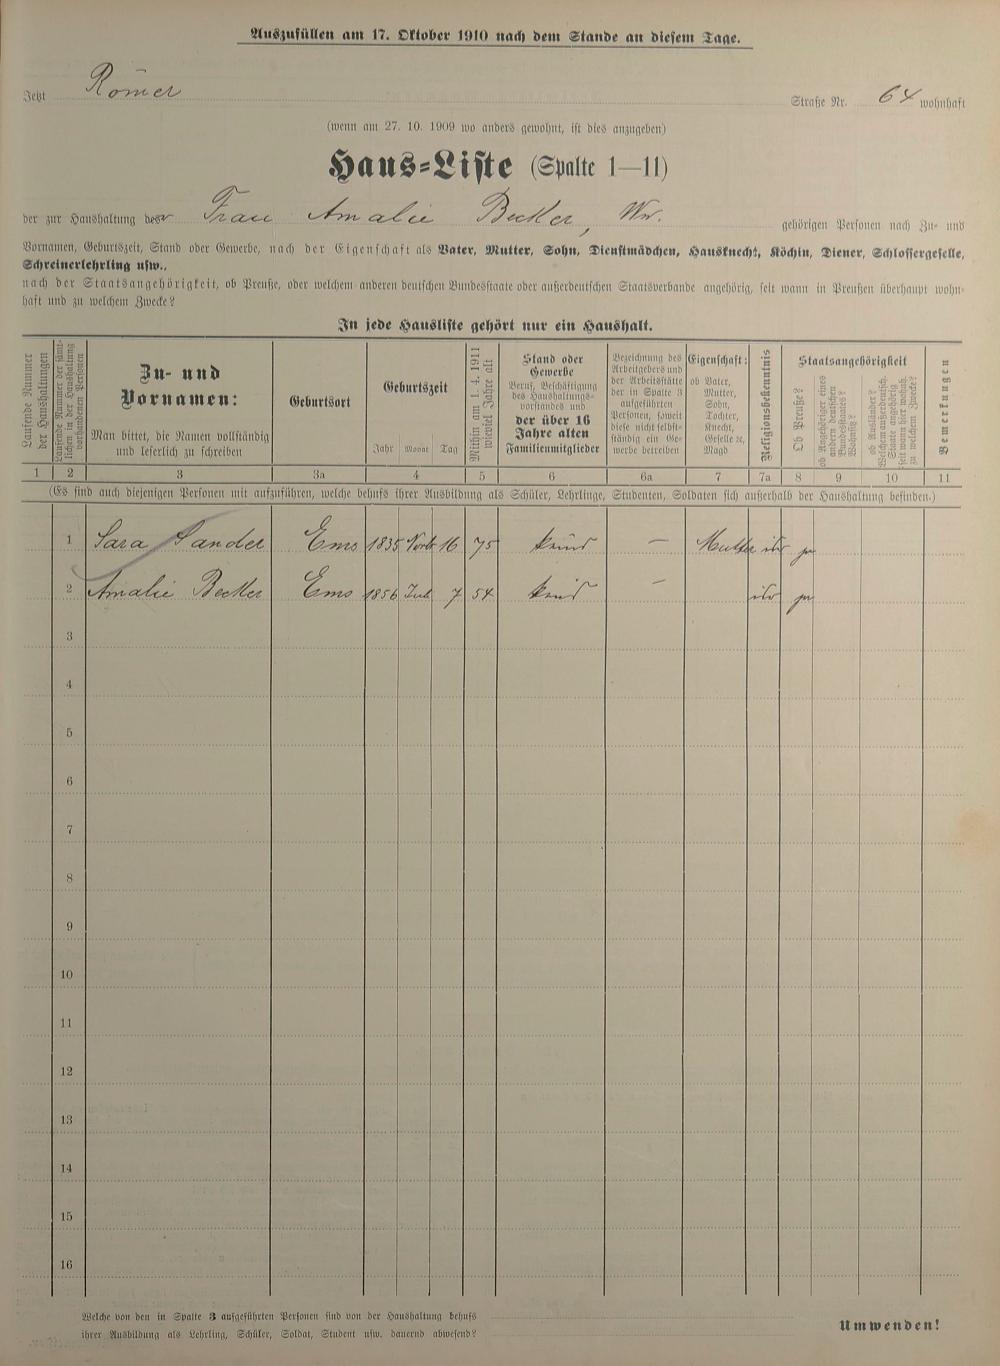 Auszufüllen am 17. Oktober 1910 nach dem Stande an diesem Tage.
Jetzt Römer Straße Nr. 64 wohnhaft
(wenn am 27. 10. 1909 wo anders gewohnt, ist dies anzugeben)
Haus=Liste (Spalte 1—11)
der zur Haushaltung des Frau Amalie Becker, Ww. gehörigen Personen nach Zu- und
Vornamen, Geburtszeit, Stand oder Gewerbe, nach der Eigenschaft als Vater, Mutter, Sohn, Dienstmädchen, Hausknecht, Köchin, Diener, Schlossergeselle,
Schreinerlehrling usw.,
nach der Staatsangehörigkeit, ob Preuße, oder welchem anderen deutschen Bundesstaate oder außerdeutschen Staatsverbande angehörig, seit wann in Preußen überhaupt wohn-
haft und zu welchem Zwecke?
In jede Hausliste gehört nur ein Haushalt.
Laufende Nummer
der Haushaltungen
Laufende Nummer der sämt-
lichen in der Haushaltung
vorhandenen Personen
Zu- und
Vornamen:
Man bittet, die Namen vollständig
und leserlich zu schreiben
Geburtsort
Geburtszeit
Jahr Monat Tag
Mithin am 1. 4. 1911
wieviel Jahre alt
Stand oder
Gewerbe
Beruf, Beschäftigung
des Haushaltungs-
vorstandes und
der über 16
Jahre alten
Familienmitglieder
Bezeichnung des
Arbeitgebers und
der Arbeitsstätte
der in Spalte 3
aufgeführten
Personen, soweit
diese nicht selbst-
ständig ein Ge-
werbe betreiben
Eigenschaft:
ob Vater,
Mutter,
Sohn,
Tochter,
Knecht,
Geselle ꝛc,
Magd
Religionsbekenntnis
Staatsangehörigkeit
Ob Preuße?
ob Angehöriger eines
andern deutschen
Bundesstaates?
Wohnsitz?
ob Ausländer?
Welchem außerdeutsch.
Staate angehörig
seit wann hier wohnh.
zu welchem Zwecke?
Bemerkungen
1 2 3 3a 4 5 6 6a 7 7a 8 9 10 11
(Es sind auch diejenigen Personen mit aufzuführen, welche behufs ihrer Ausbildung als Schüler, Lehrlinge, Studenten, Soldaten sich außerhalb der Haushaltung befinden.)
1 Sara Sander Ems 1835 16 75 — Mutter isr ja
2 Amalie Becker Ems 1856 Juli 7 54 — isr ja
3
4
5
6
7
8
9
10
11
12
13
14
15
16
Welche von den in Spalte 3 aufgeführten Personen sind von der Haushaltung behufs
ihrer Ausbildung als Lehrling, Schüler, Soldat, Student usw. dauernd abwesend?
Umwenden!